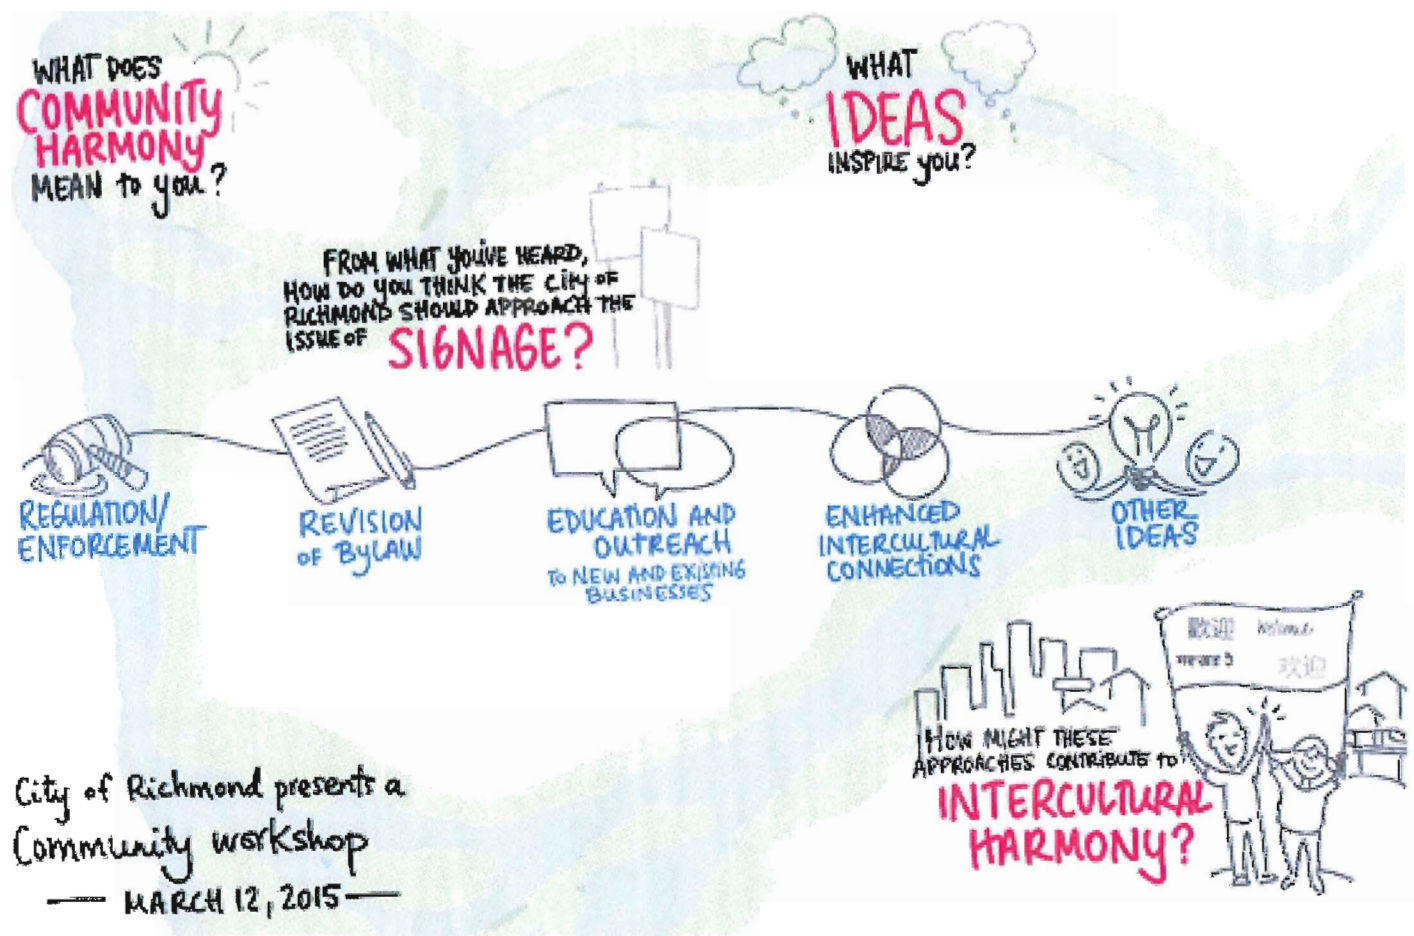 WHAT DOES
COMMUNITY
HARMONY
MEAN to you?
WHAT
IDEAS
INSPIRE you?
FROM WHAT YOU'VE HEARD,
HOW DO YOU THINK THE City OF
RICHMOND SHOULD APPROACH THE
ISSUE OF SIGNAGE?
REGULATION/
ENFORCEMENT
REVISION
OF ByLAW
EDUCATION AND
OUTREACH
to NEW AND EXISTING
BUSINESSES
ENHANCED
INTERCULTURAL
CONNECTIONS
OTHER
IDEAS
歡迎 Welcome
欢迎
HOW MIGHT THESE
APPROACHES CONTRIBUTE to
INTERCULTURAL
HARMONY?
City of Richmond presents a
Community workshop
— MARCH 12, 2015 —